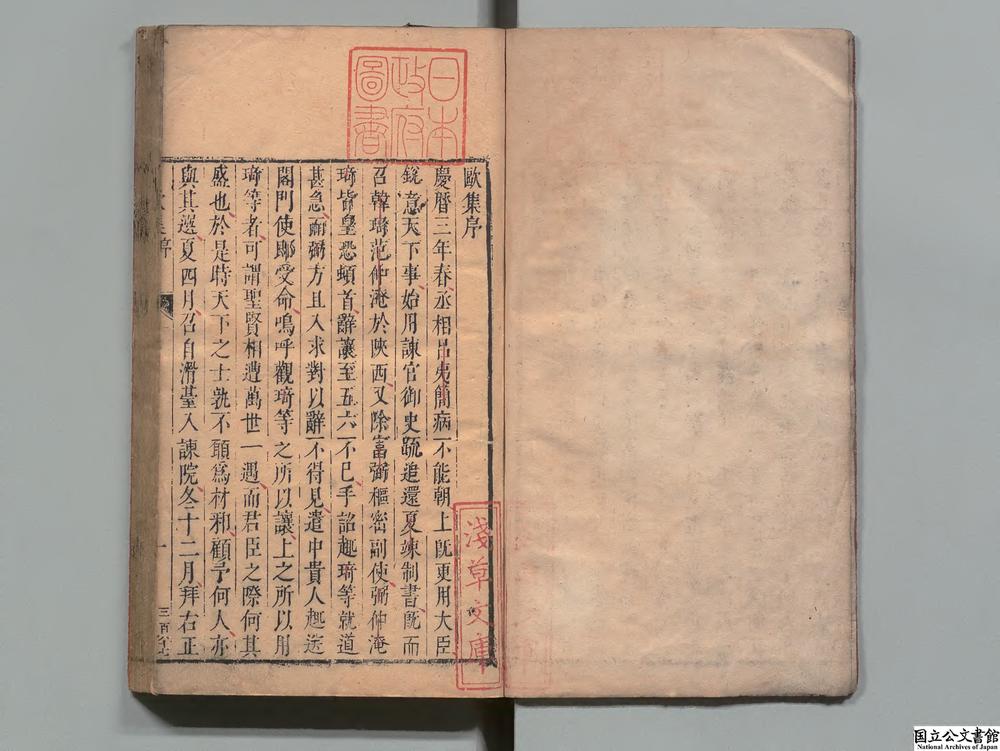 歐集序
慶曆三年春丞相呂夷簡病不能朝上既更用大臣
銳意天下事始用諫官御史疏追還夏竦制書既而
召韓琦范仲淹於陜西又除富弼樞密副使弼仲淹
琦皆皇恐頓首辭讓至五六不已手詔趣琦等就道
甚急而弼方且入求對以辭不得見遣中貴人趣送
閤門使卽受命嗚呼觀琦等之所以讓上之所以用
琦等者可謂聖賢相遭萬世一遇而君臣之際何其
盛也於是時天下之士孰不願爲材邪顧予何人亦
與其選夏四月召自滑臺入諫院冬十二月拜右正
序
一
日本
政府
圖書
淺草文庫
国立公文書館
National Archives of Japan